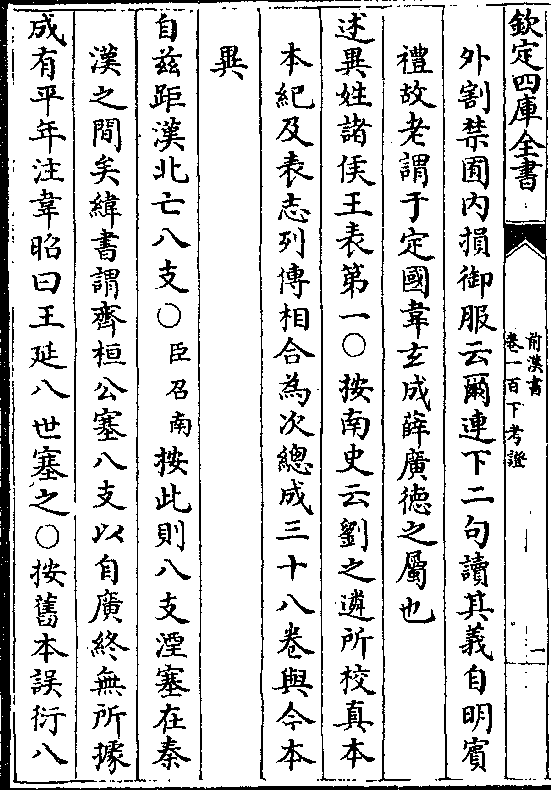 欽定四庫全書
前漢書
卷一百下考證
一
外割禁囿內損御服云爾連下二句讀其義自明賓
禮故老謂于定國韋玄成薛廣德之屬也
述異姓諸侯王表第一○按南史云劉之遴所校真本
本紀及表志列傳相合為次總成三十八卷與今本
異
自兹距漢北亡八支○臣召南按此則八支湮塞在秦
漢之間矣緯書謂齊桓公塞八支以自廣終無所據
成有平年注韋昭曰王延八世塞之○按舊本誤衍八